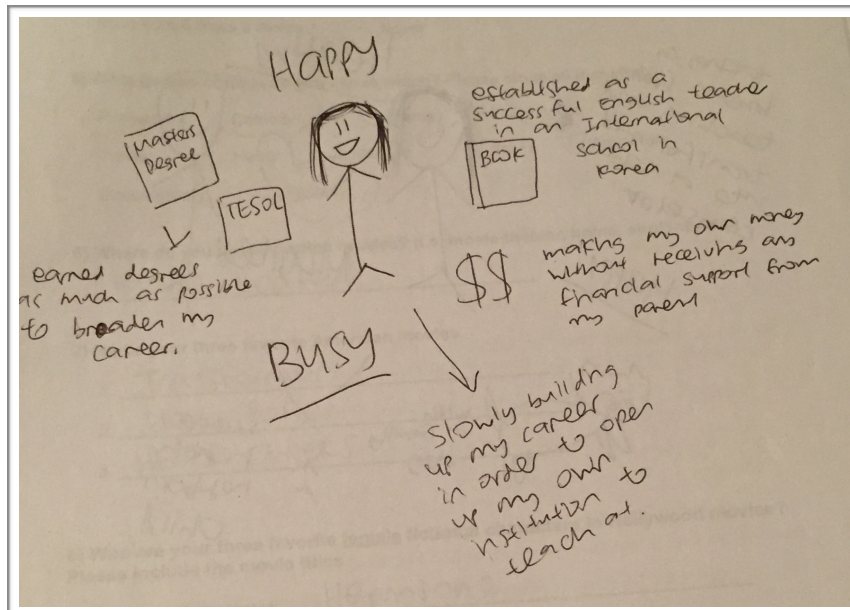 Happy
Masters
Degree
TESOL
earned degrees
as much as possible
to broaden my
career.
established as a
successful English teacher
in an International
school in
Korea
BOOK
$$
making my own money
without receiving any
financial support from
my parent
BUSY
slowly building
up my career
in order to open
up my own
institution to
teach at.